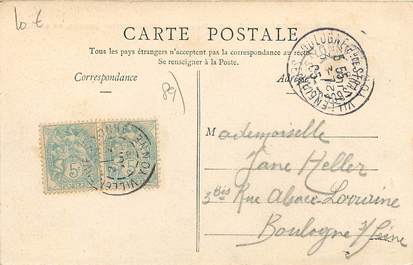 10 €
CARTE POSTALE
Tous les pays étrangers n'acceptent pas la correspondance au recto
Se renseigner à la Poste.
Correspondance
Adresse
89)
5
Mademoiselle
Jane Heller
3bis Rue Alsace-Lorraine
Boulogne s/ Seine